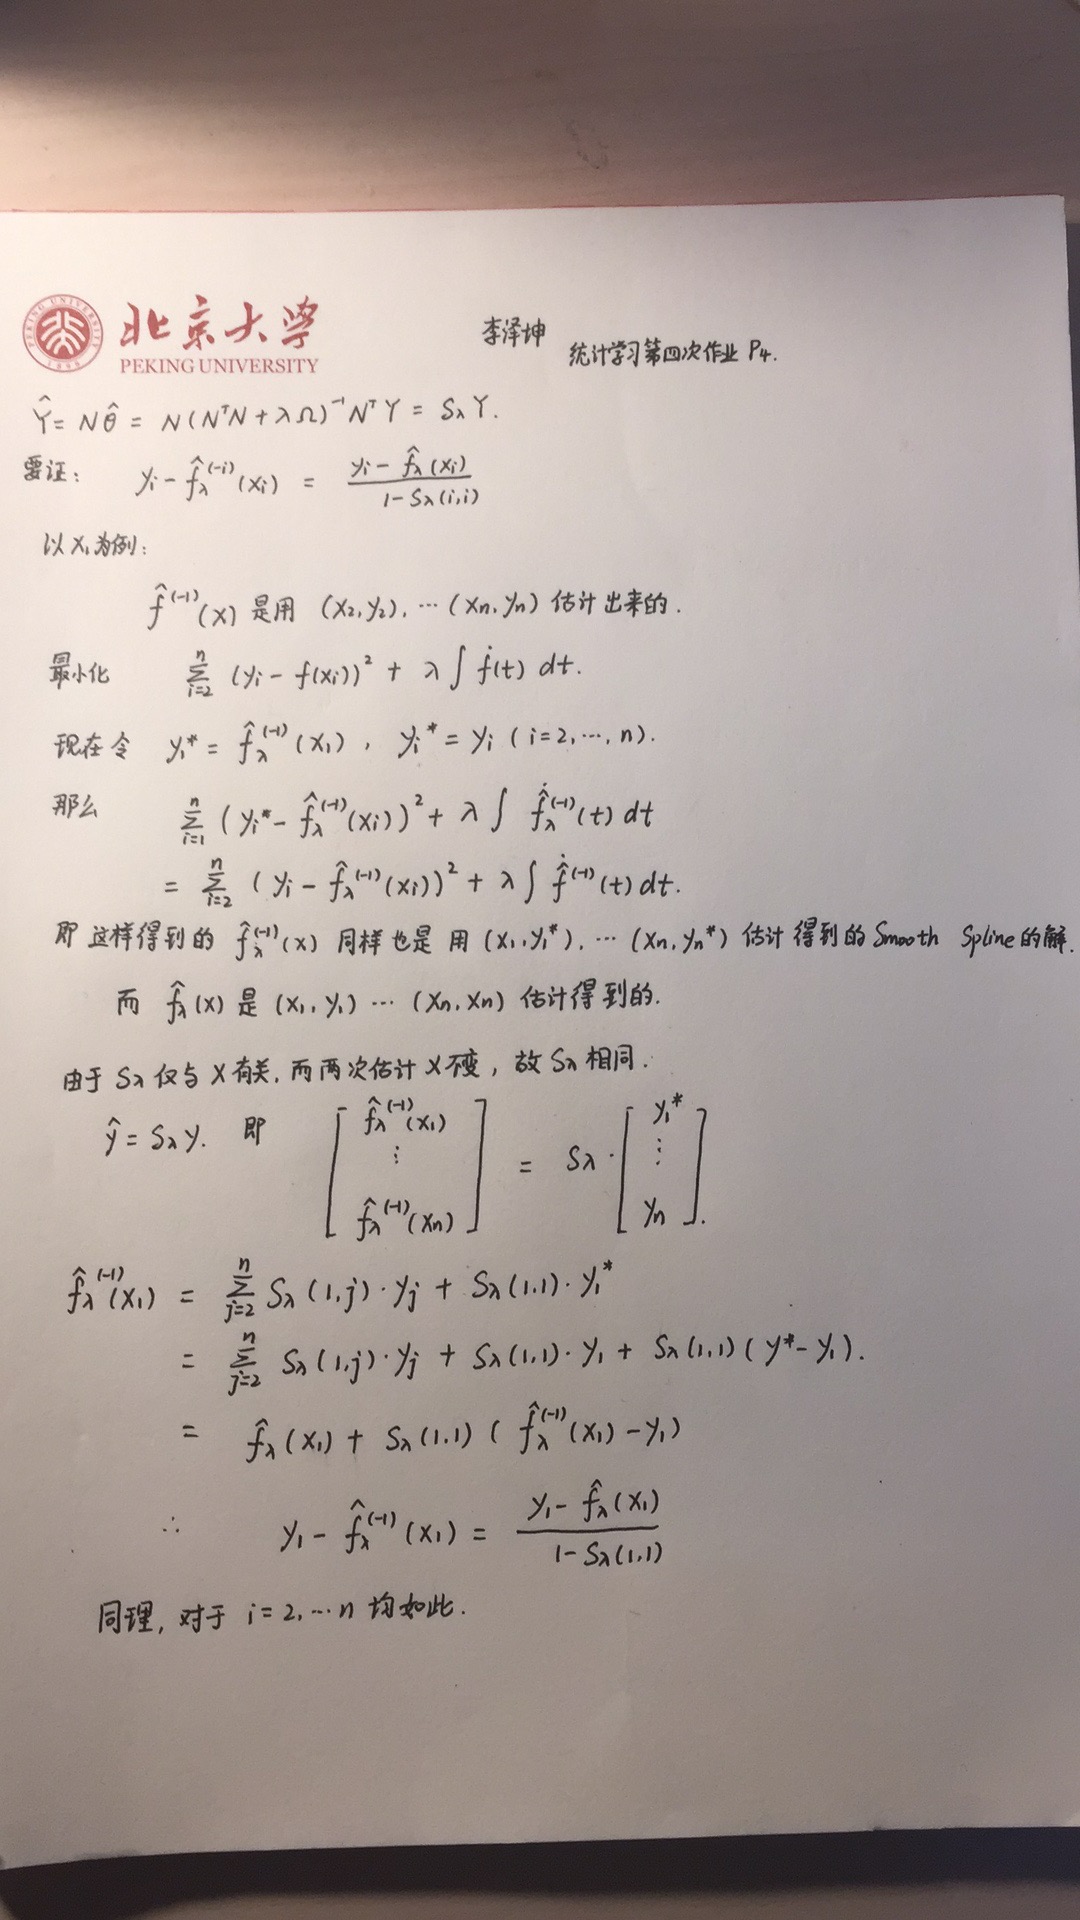 北京大学
PEKING UNIVERSITY
PEKING UNIVERSITY
1898
李泽坤 统计学习第四次作业 P4.
Ŷ = Nθ̂ = N(NᵀN + λΩ)⁻¹NᵀY = SλY.
要证: yi - f̂λ^(-i)(xi) = (yi - f̂λ(xi)) / (1 - Sλ(i,i))
以X1为例:
f̂^(-1)(x) 是用 (x2,y2), … (xn,yn) 估计出来的.
最小化 Σ_{i=2}^{n} (yi - f(xi))² + λ∫ḟ(t) dt.
现在令 y1* = f̂λ^(-1)(x1), yi* = yi (i=2, …, n).
那么 Σ_{i=1}^{n} (yi* - f̂λ^(-1)(xi))² + λ∫ f̂̇λ^(-1)(t) dt
= Σ_{i=2}^{n} (yi - f̂λ^(-1)(xi))² + λ∫ f̂̇^(-1)(t) dt.
即 这样得到的 f̂λ^(-1)(x) 同样也是 用 (x1,y1*), … (xn,yn*) 估计 得到的 Smooth Spline 的解.
而 f̂λ(x) 是 (x1,y1) … (xn,xn) 估计得到的.
由于 Sλ 仅与 X 有关, 而两次估计 X 不变, 故 Sλ 相同.
ŷ = Sλy. 即 [f̂λ^(-1)(x1) ⋮ f̂λ^(-1)(xn)] = Sλ · [y1* ⋮ yn].
f̂λ^(-1)(x1) = Σ_{j=2}^{n} Sλ(1,j)·yj + Sλ(1,1)·y1*
= Σ_{j=2}^{n} Sλ(1,j)·yj + Sλ(1,1)·y1 + Sλ(1,1)(y* - y1).
= f̂λ(x1) + Sλ(1,1)(f̂λ^(-1)(x1) - y1)
∴ y1 - f̂λ^(-1)(x1) = (y1 - f̂λ(x1)) / (1 - Sλ(1,1))
同理, 对于 i=2, …n 均如此.